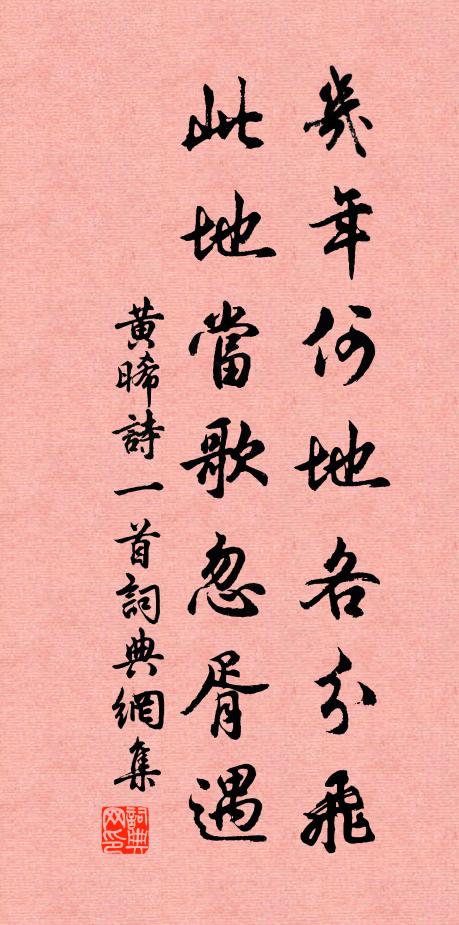 幾年何地各分飛
此地當歌忽胥遇
黃晞詩一首詞典網集
詞典网印